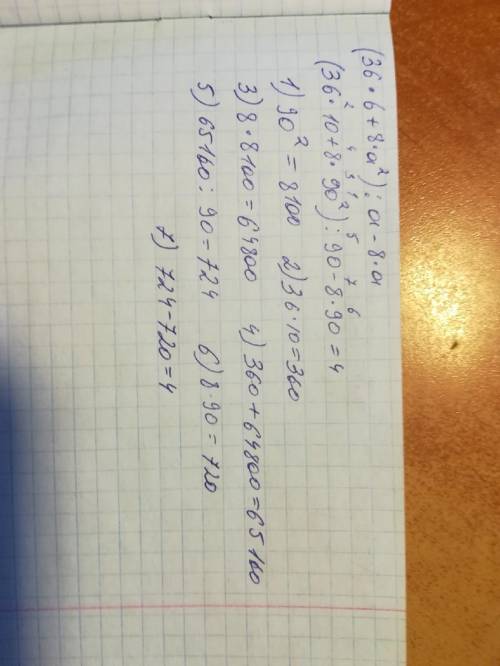 (36·6+8·a²):a-8·a
2 4 3 1 5 7 6
(36·10+8·90²):90-8·90=4
1) 90²=8100 2) 36·10=360
3) 8·8100=64800 4) 360+64800=65160
5) 65160:90=724 6) 8·90=720
7) 724-720=4